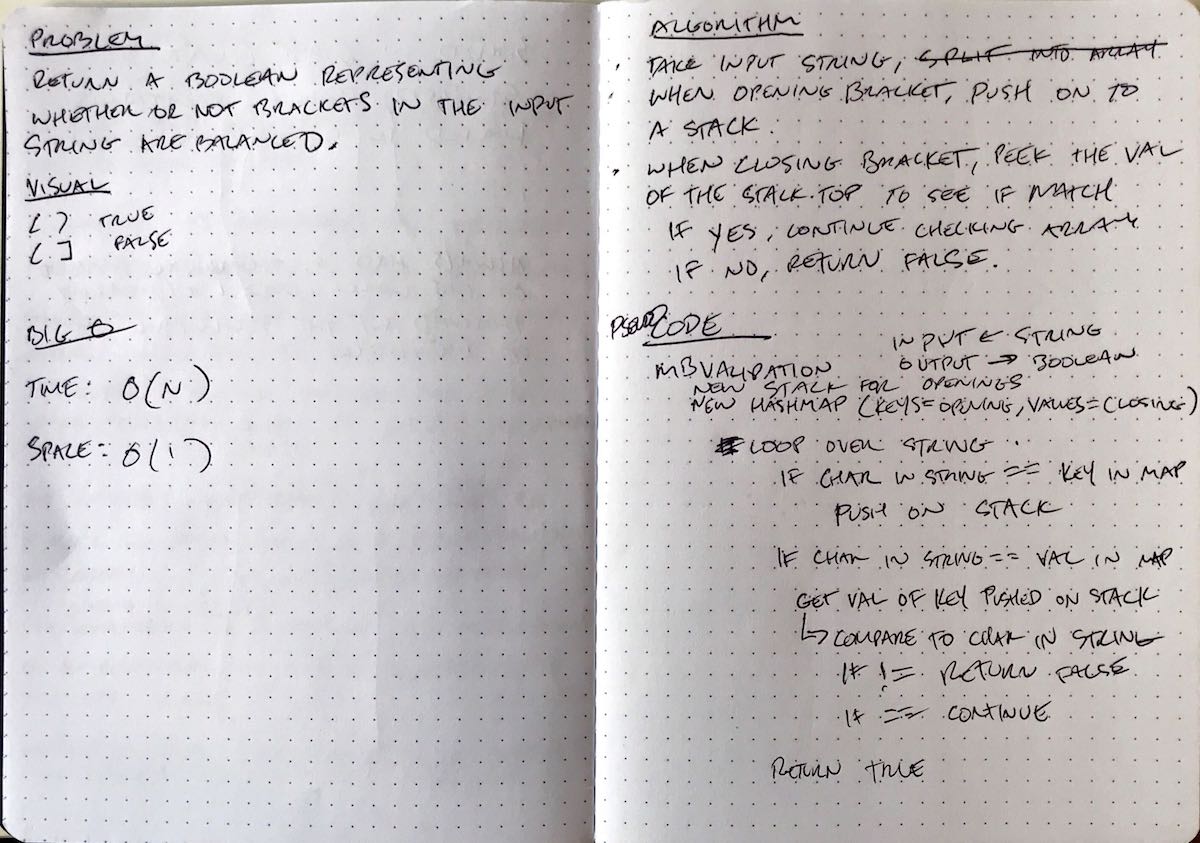 PROBLEM
RETURN A BOOLEAN REPRESENTING
WHETHER OR NOT BRACKETS IN THE INPUT
STRING ARE BALANCED.
VISUAL
( ) TRUE
( ] FALSE
BIG O
TIME: O(N)
SPACE: O(1)
ALGORITHM
TAKE INPUT STRING, SPLIT INTO ARRAY
WHEN OPENING BRACKET, PUSH ON TO
A STACK.
WHEN CLOSING BRACKET, PEEK THE VAL
OF THE STACK TOP TO SEE IF MATCH
IF YES, CONTINUE CHECKING ARRAY
IF NO, RETURN FALSE.
PSEUDOCODE
INPUT ← STRING
OUTPUT → BOOLEAN
MBVALIDATION
NEW STACK FOR OPENINGS
NEW HASHMAP (KEYS=OPENING, VALUES=CLOSING)
LOOP OVER STRING
IF CHAR IN STRING == KEY IN MAP
PUSH ON STACK
IF CHAR IN STRING == VAL IN MAP
GET VAL OF KEY PUSHED ON STACK
↳ COMPARE TO CHAR IN STRING
IF != RETURN FALSE
IF == CONTINUE
RETURN TRUE